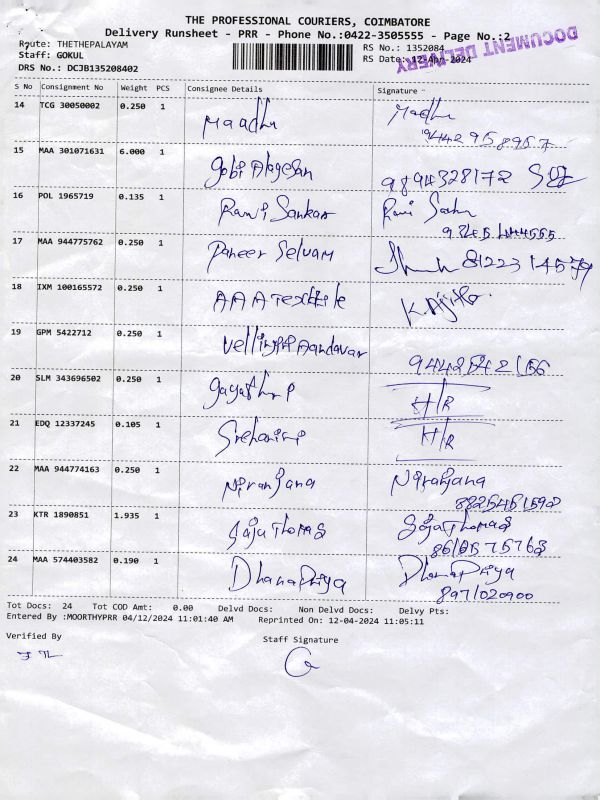 THE PROFESSIONAL COURIERS, COIMBATORE
Delivery Runsheet - PRR - Phone No.:0422-3505555 - Page No.:2
DOCUMENT DELIVERY
Route: THETHEPALAYAM
RS No.: 1352084
Staff: GOKUL
RS Date: 12-Apr-2024
DRS No.: DCJB135208402
S No Consignment No Weight PCS Consignee Details Signature
14 TCG 30050002 0.250 1 Maadhu Madhu
9442958957
15 MAA 301071631 6.000 1 Gobi Alagesan 9894328172
16 POL 1965719 0.135 1 Ravi Sankar
17 MAA 944775762 0.250 1 Paneer Selvam
18 IXM 100165572 0.250 1 AAA Textile
19 GPM 5422712 0.250 1
20 SLM 343696502 0.250 1 H/R
21 EDQ 12337245 0.105 1 H/R
22 MAA 944774163 0.250 1 Niranjana Niranjana
23 KTR 1890851 1.935 1 Saju Thomas Saju Thomas
24 MAA 574403582 0.190 1 Dhana Priya Dhana Priya
8971020900
Tot Docs: 24 Tot COD Amt: 0.00 Delvd Docs: Non Delvd Docs: Delvy Pts:
Entered By :MOORTHYPRR 04/12/2024 11:01:40 AM Reprinted On: 12-04-2024 11:05:11
Verified By Staff Signature